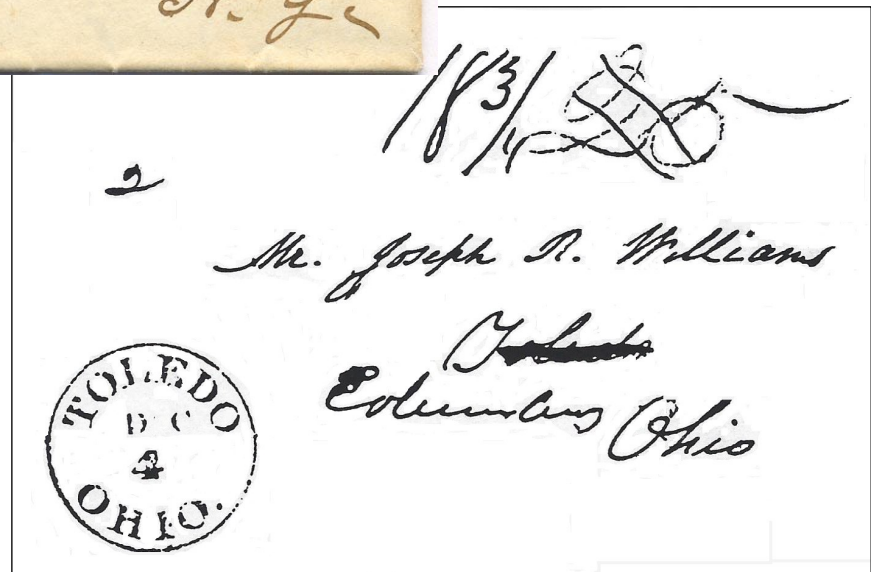 N. Y.
18 3/
2
Mr. Joseph R. Williams
Toledo
Columbus Ohio
TOLEDO
DC
4
OHIO.